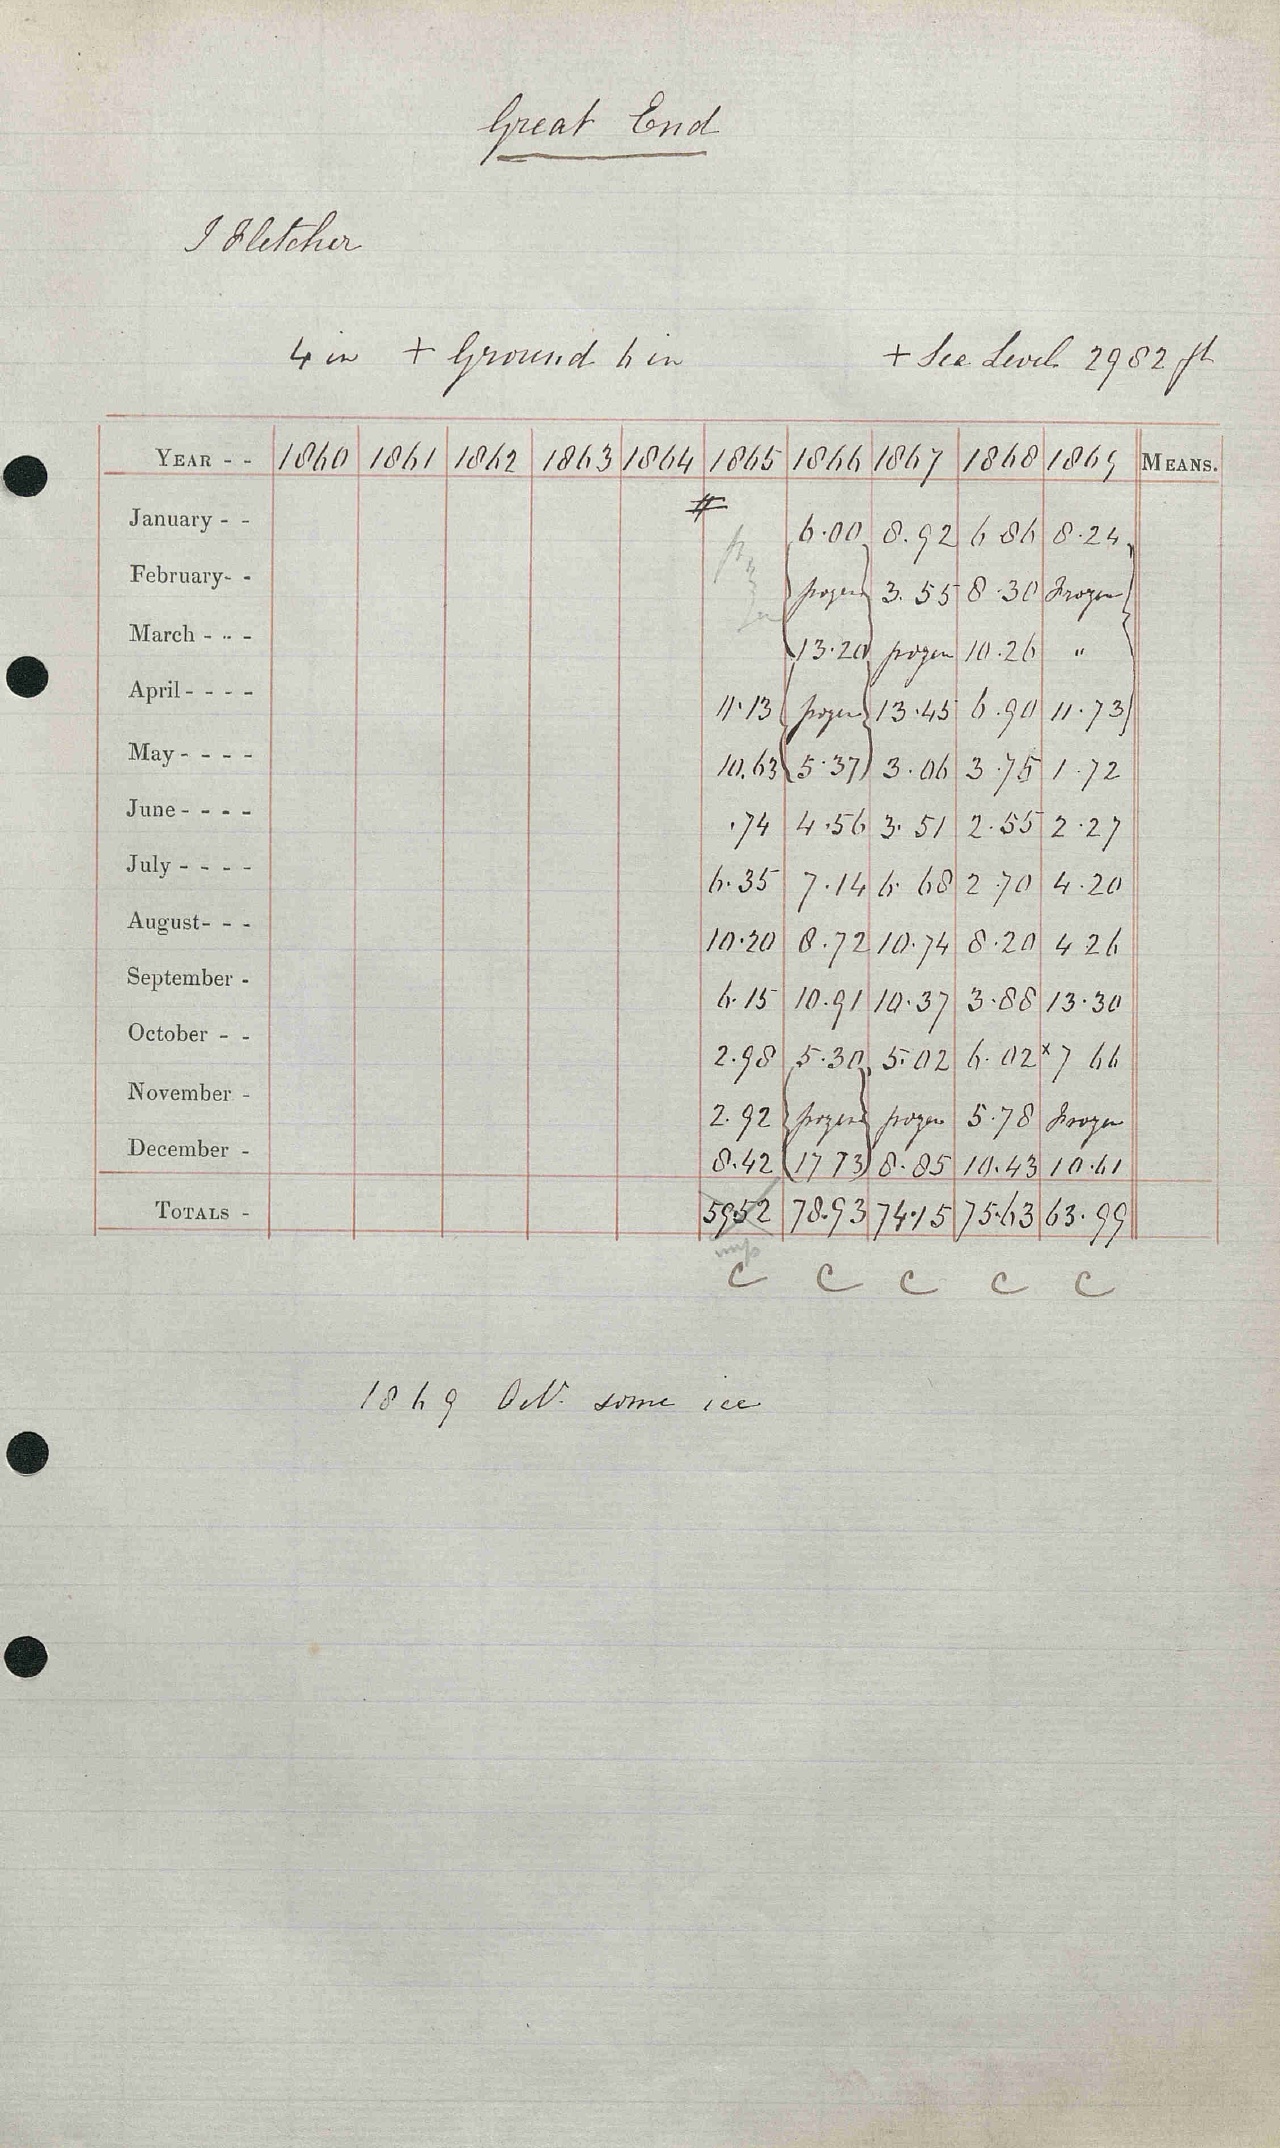 Great End
I Fletcher
4 in + Ground 6 in + Sea Level 2982 ft
YEAR - - 1860 1861 1862 1863 1864 1865 1866 1867 1868 1869 MEANS.
January - - # 6.00 8.92 6 86 8.24
February- - frozen 3.55 8.30 Frozen
March - - - 13.20 frozen 10.26 "
April - - - - 11.13 frozen 13.45 6.90 11.73
May - - - - 10.63 5.37 3.06 3.75 1.72
June - - - - .74 4.56 3.51 2.55 2.27
July - - - - 6.35 7.14 6.68 2.70 4.20
August- - - 10.20 8.72 10.74 8.20 4 26
September - 6.15 10.91 10.37 3.88 13.30
October - - 2.98 5.30 5.02 6.02 x 7 66
November - 2.92 frozen frozen 5.78 Frozen
December - 8.42 17 73 8.85 10.43 10.61
TOTALS - 59.52 78.93 74.15 75.63 63.99
C C C C C
1869 Oct. some ice